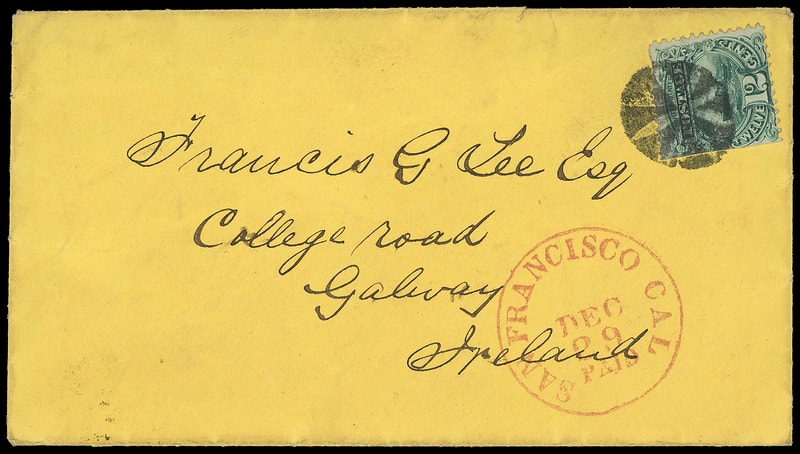 Francis G Lee Esq
College road
Galway
Ireland
SAN FRANCISCO CAL
DEC
29
PAID
CENTS
12
TWELVE